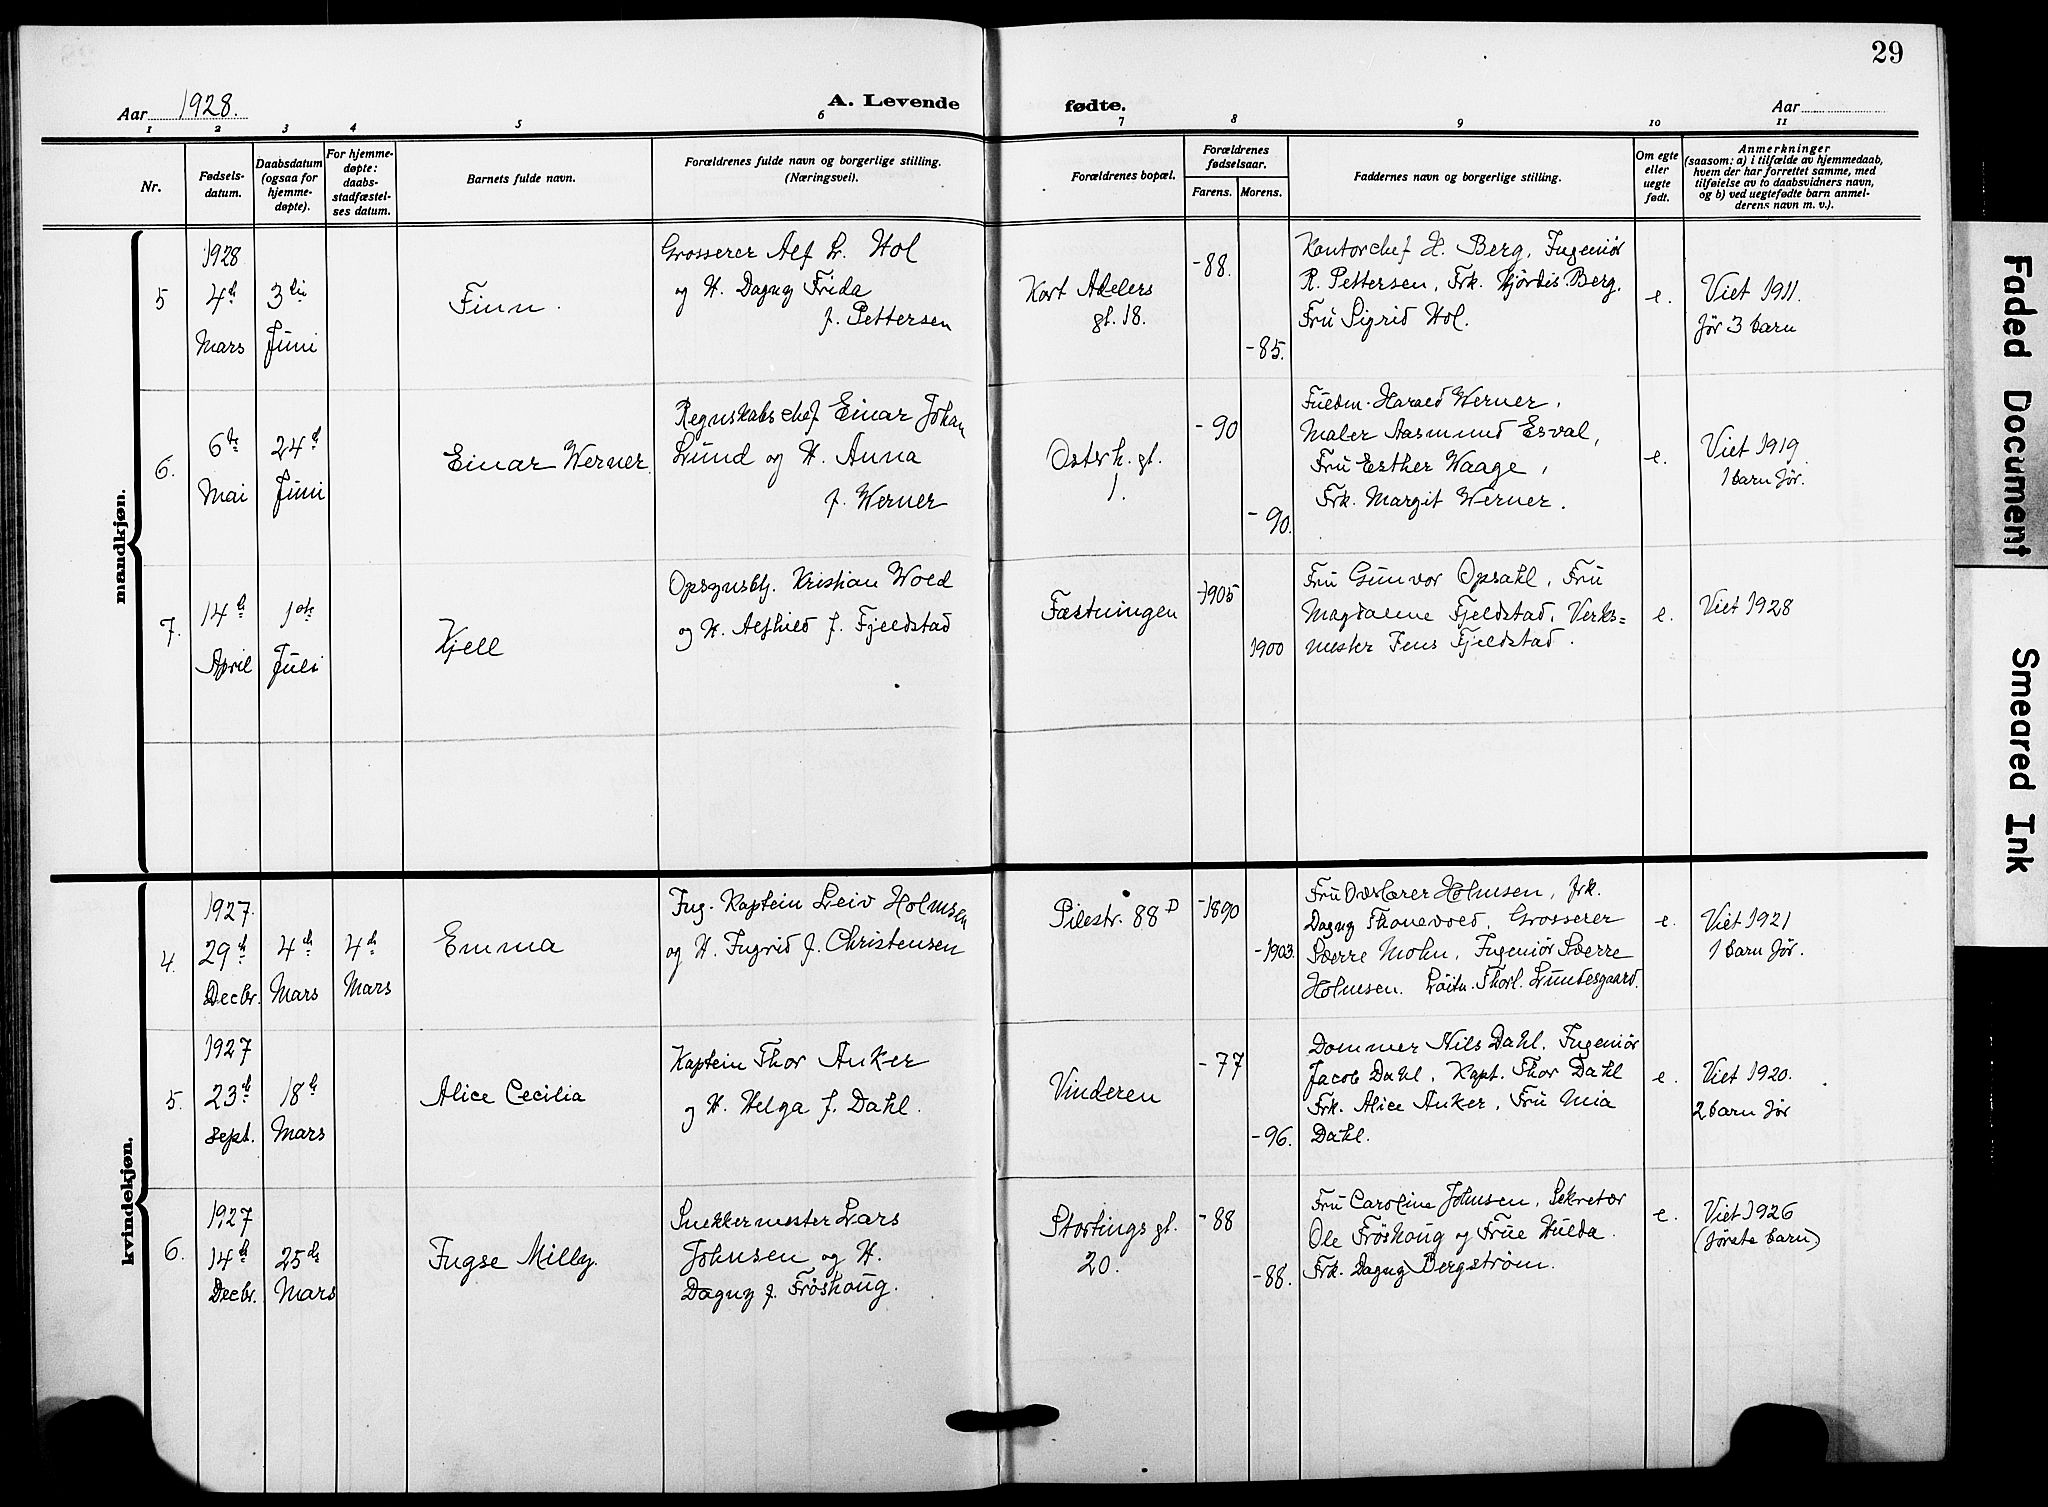 29
Aar 1928.
A. Levende fødte.
Aar
1 2 3 4 5 6 7 8 9 10 11
Nr.
Fødsels-
datum.
Daabsdatum
(ogsaa for
hjemme-
døpte).
For hjemme-
døpte:
daabs-
stadfæstel-
ses datum.
Barnets fulde navn.
Forældrenes fulde navn og borgerlige stilling.
(Næringsvei).
Forældrenes bopæl.
Forældrenes
fødselsaar.
Farens. Morens.
Faddernes navn og borgerlige stilling.
Om egte
eller
uegte
født.
Anmerkninger
(saasom: a) i tilfælde av hjemmedaab,
hvem der har forrettet samme, med
tilføielse av to daabsvidners navn,
og b) ved uegtefødte barn anmel-
derens navn m. v.).
mandkjøn.
5
1928
4de
Mars
3die
Juni
Finn.
Grosserer Alf L. Hol
og H. Dagny Frida
f. Pettersen
Kort Adelers
gt. 18.
-88.
-85.
Kontorchef H. Berg, Ingeniør
R. Pettersen, Frk. Hjørdis Berg,
Fru Sigrid Hol.
e.
Viet 1911.
før 3 barn
6.
6te
Mai
24de
Juni
Einar Werner.
Regnskabschef Einar Johan
Lund og H. Anna
f. Werner
Osterh. gt.
1.
-90
-90.
Fuldm. Harald Werner,
Maler Aasmund Esval,
Fru Esther Waage,
Frk. Margit Werner.
e.
Viet 1919
1 barn før.
7.
14de
April
1ste
Juli
Kjell
Opsynsbtj. Kristian Wold
og H. Alfhild f. Fjeldstad
Fæstningen
-1905
1900
Fru Gunvor Opsahl, Fru
Magdalene Fjeldstad, Verks=
mester Jens Fjeldstad.
e.
Viet 1928
kvindekjøn.
4.
1927.
29de
Decbr.
4de
Mars
4de
Mars
Emma
Ing. Kaptein Leiv Holmsen
og H. Ingrid f. Christensen
Pilestr. 88 D
-1890
-1903.
Fru Overlærer Holmsen, frk.
Dagny Thonevold, Grosserer
Sverre Mohn, Ingeniør Sverre
Holmsen. Løitn. Thorl. Lundesgaard.
e.
Viet 1921
1 barn før.
5.
1927
23de
Sept.
18de
Mars
Alice Cecilia
Kaptein Thor Anker
og H. Helga f. Dahl.
Vinderen
-77
-96.
Dommer Nils Dahl, Ingeniør
Jacob Dahl, Kapt. Thor Dahl
Frk. Alice Anker, Fru Mia
Dahl.
e.
Viet 1920.
2 barn før
6.
1927
14de
Decbr.
25de
Mars
Ingse Milly.
Snekkermester Lars
Johnsen og H.
Dagny f. Frøshoug.
Stortings gt.
20.
-88
-88.
Fru Caroline Johnsen, Sekretær
Ole Frøshoug og Frue Hulda.
Frk. Dagny Bergstrøm.
e.
Viet 1926
(første barn)
Faded Document
Smeared Ink